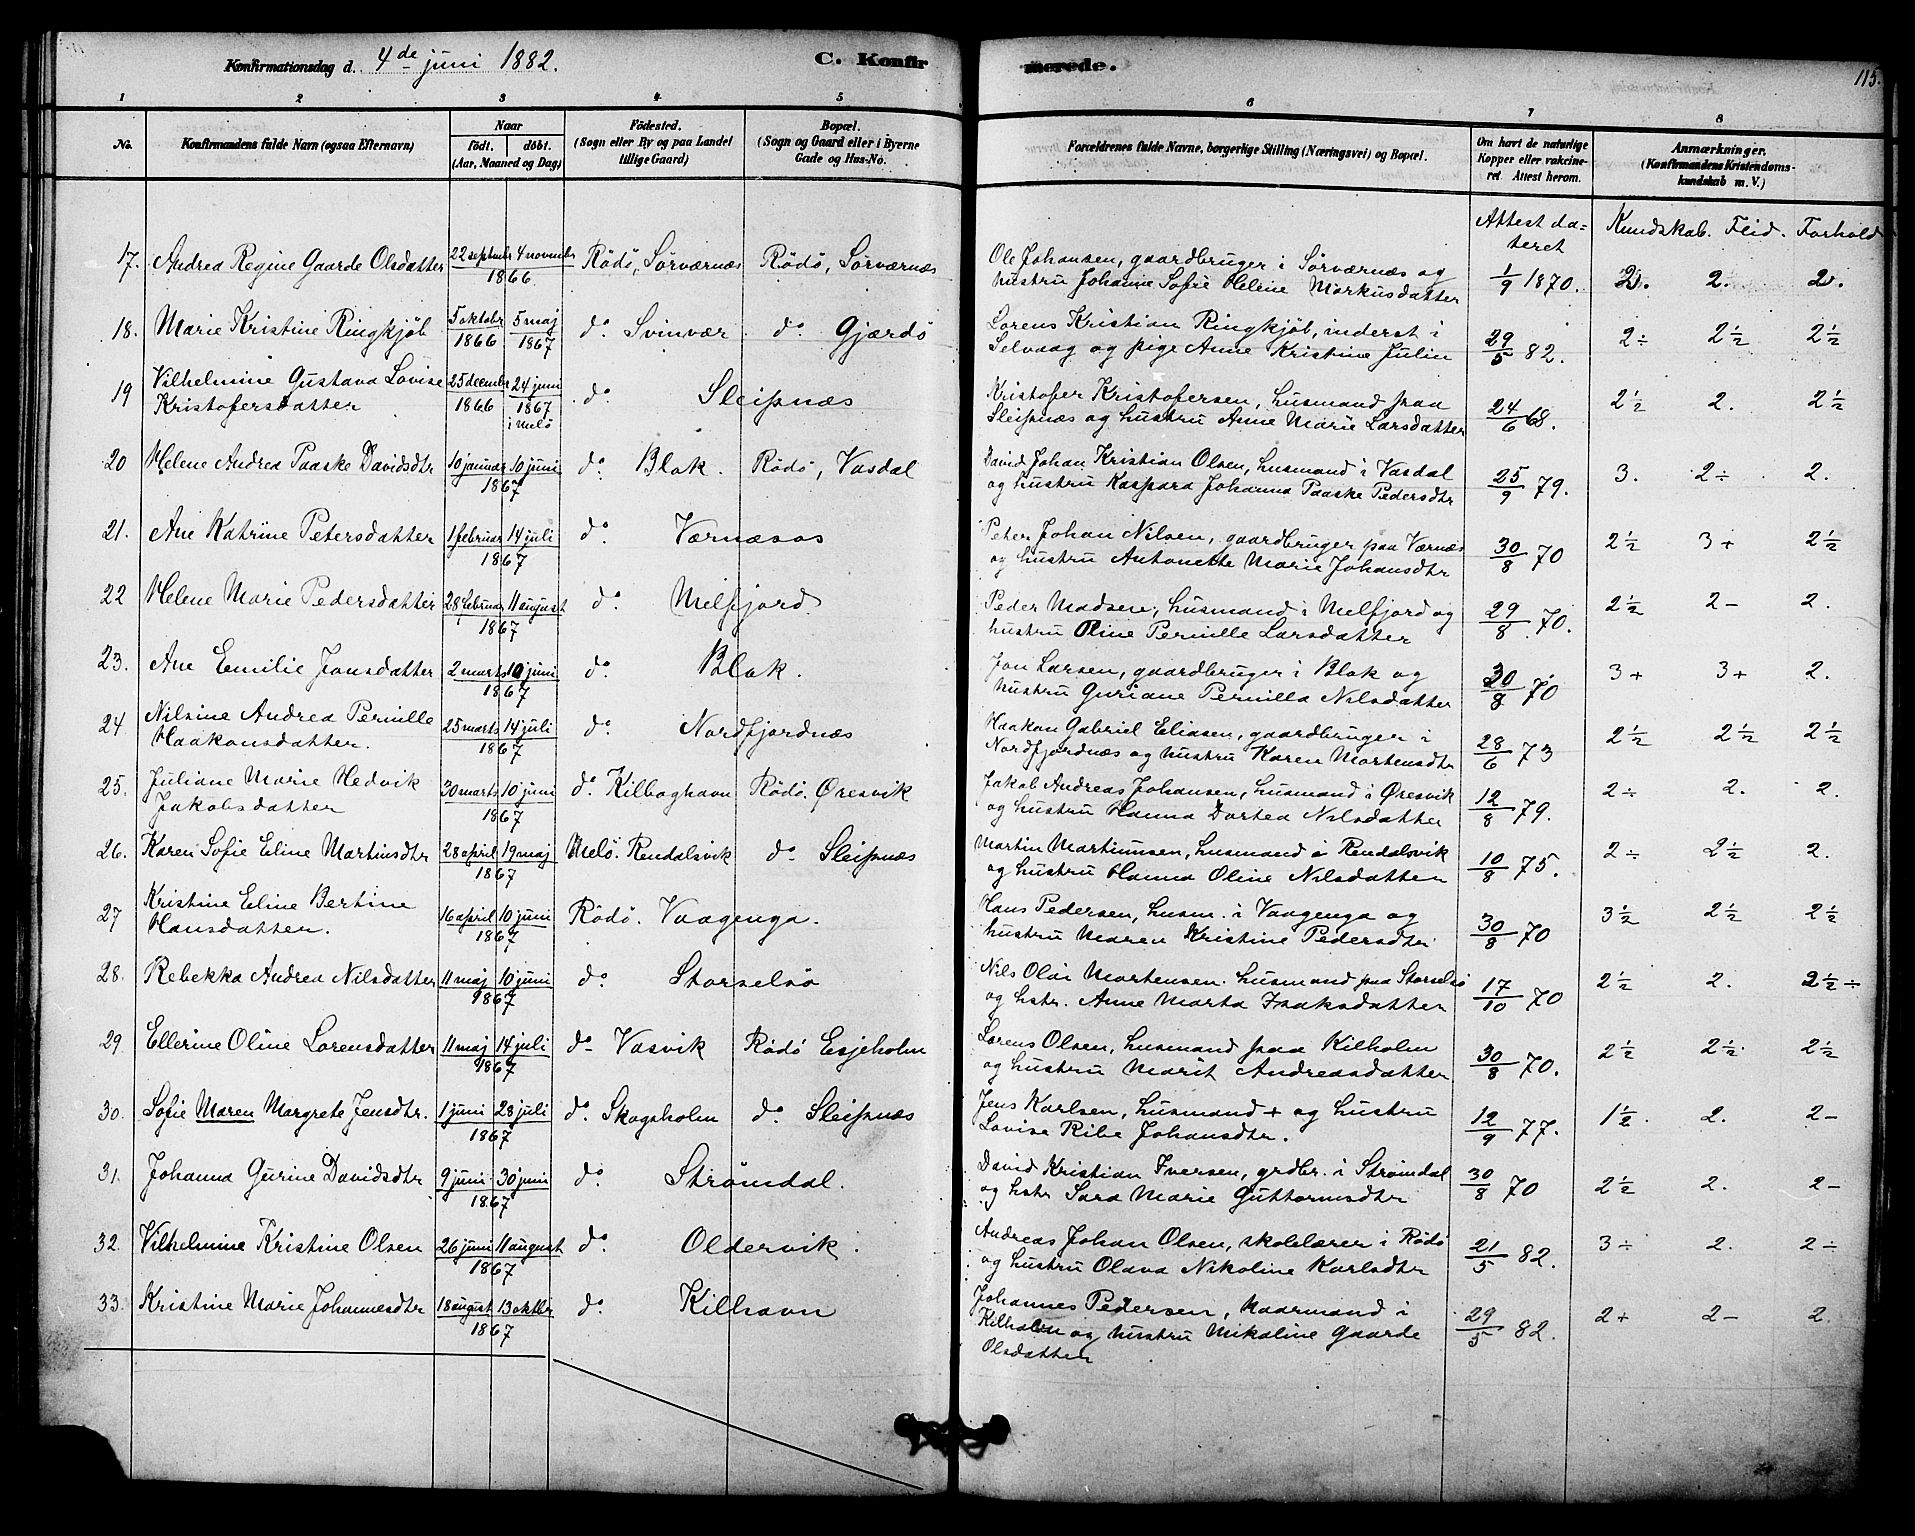 Konfirmationsdag d. 4de juni 1882. C. Konfirmerede. 115.
1 2 3 4 5 6 7 8
No. Konfirmandens fulde Navn (ogsaa Efternavn) Naar födt. döbt. (Aar, Maaned og Dag) Födested. (Sogn eller By og paa Landet tillige Gaard) Bopæl. (Sogn og Gaard eller i Byerne Gade og Hus-No. Forældrenes fulde Navne, borgerlige Stilling (Næringsvei) og Bopæl. Om havt de naturlige Kopper eller vakcineret Attest herom. Anmærkninger. (Konfirmandens Kristendomskundskab m. V.)
Attest dateret Kundskab. Flid. Forhold
17. Andrea Regine Gaarde Olsdatter 22 septembr 4 november 1866 Rödö, Sörværnæs Rödö, Sörværnæs Ole Johansen, gaardbruger i Sörværnæs og
hustru Johanne Sofie Helene Markusdatter 1/9 1870. 2. 2. 2.
18. Marie Kristine Ringkjöb 5 oktobr 1866 5 maj 1867 do Svinvær do Gjærdö Lorens Kristian Ringkjöb, inderst i
Selvaag og pige Anne Kristine Julin 29/5 82. 2÷ 2½ 2½
19 Vilhelmine Gustava Lovise
Kristofersdatter 25 decembr 1866 24 juni 1867 i Melö do Sleipnæs Kristofer Kristofersen, husmand paa
Sleipnæs og hustru Anne Marie Larsdatter 24/6 68. 2½ 2. 2½
20 Helene Andrea Paaske Davidsdtr 10 januar 10 juni 1867 do Blok. Rödö, Vasdal David Johan Kristian Olsen, husmand i Vasdal
og hustru Kaspara Johanna Paaske Pedersdtr 25/9 79. 3. 2÷ 2.
21. Ane Katrine Petersdatter 1 februar 14 juli 1867 do Værnæsos Peter Johan Nilsen, gaardbruger paa Værnæs
og hustru Antonette Marie Johansdtr 30/8 70 2½ 3+ 2½
22 Helene Marie Pedersdatter 28 februar 11 august 1867 do Melfjord Peder Madsen, husmand i Melfjord og
hustru Oline Pernille Larsdatter 29/8 70. 2½ 2- 2.
23. Ane Emilie Jonsdatter 2 marts 10 juni 1867 do Blok. Jon Larsen, gaardbruger i Blok og
hustru Guriane Pernilla Nilsdatter 30/8 70 3+ 3+ 2.
24 Nilsine Andrea Pernille
Haakonsdatter. 25 marts 14 juli 1867 do Nordfjordnæs Haakon Gabriel Eliasen, gaardbruger i
Nordfjordnæs og hustru Karen Mortensdtr 28/6 73 2½ 2½ 2½
25. Juliane Marie Hedvik
Jakobsdatter 30 marts 10 juni 1867 do Kilboghavn Rödö. Øresvik Jakob Andreas Johansen, husmand i Øresvik
og hustru Hanna Dortea Nilsdatter 12/8 79. 2÷ 2. 2.
26. Karen Sofie Eline Martinsdtr 28 april 19 maj 1867 Melö. Rendalsvik do Sleipnæs Martin Martinusen, husmand i Rendalsvik
og hustru Hanna Oline Nilsdatter 10/8 75. 2÷ 2½ 2.
27 Kristine Eline Bertine
Hansdatter. 16 april 10 juni 1867 Rödö. Vaagenga. Hans Pedersen, husm. i Vaagenga og
hustru Maren Kristine Pedersdtr. 30/8 70 3½ 2½ 2½
28. Rebekka Andrea Nilsdatter 11 maj 10 juni 1867 do Storselsö Nils Olai Mortensen. husmand paa Storselsö
og hstr. Anne Marta Isaksdatter 17/10 70 2½ 2. 2½÷
29 Ellerine Oline Lorensdatter 11 maj 14 juli 1867 do Vasvik Rödö Esjeholm Lorens Olsen, husmand paa Kilholm
og hustru Marit Andreasdatter 30/8 70. 2½ 2½ 2½
30. Sofie Maren Margrete Jensdtr. 1 juni 28 juli 1867 do Skogsholm do Sleipnæs Jens Karlsen, husmand + og hustru
Lovise Ribe Johansdtr. 12/9 77. 1½. 2. 2-
31. Johanna Gurine Davidsdtr 9 juni 30 juni 1867 do Strömdal. David Kristian Iversen, grdbr. i Strömdal
og hstr Sara Marie Guttormsdtr 30/8 70 2½ 2. 2-
32. Vilhelmine Kristine Olsen 26 juni 11 august 1867 do Oldervik. Andreas Johan Olsen, skolelærer i Rödö
og hustru Olava Nikoline Karlsdtr 21/5 82. 3÷ 2. 2÷
33. Kristine Marie Johannesdtr 18 august 13 oktbr 1867 do Kilhavn Johannes Pedersen, kaarmand i
Kilhavn og hustru Mikaline Gaarde
Olsdatter 29/5 82. 2+ 2- 2.